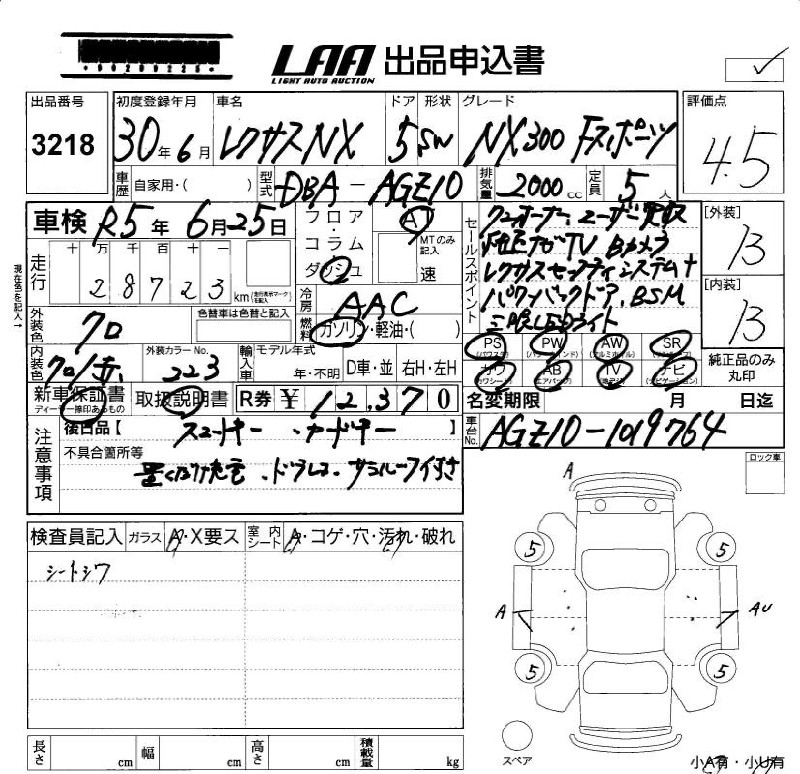 LAA 出品申込書
LIGHT AUTO AUCTION
出品番号 初度登録年月 車名 ドア 形状 グレード 評価点
3218 30年6月 レクサスNX 5 SW NX300 Fスポーツ 4.5
車歴 自家用・( ) 型式 DBA-AGZ10 排気量 2000cc 定員 5人
車検 R5年 6月25日
フロア・コラム ダッシュ
A
MTのみ記入 速
セールスポイント
ワンオーナー ユーザー買取
純正ナビTV Bカメラ
レクサスセーフティシステム+
パワーバックドア、BSM
三眼LEDライト
[外装] B
[内装] B
現在色を記入→
走行 十 万 千 百 十
28723 km
走行表示マークを記入
冷房 AAC
燃料 ガソリン・軽油・( )
外装色 クロ
色替車は色替と記入
内装色 クロ/赤
外装カラーNo. 223
輸入車 モデル年式 年・不明 D車・並 右H・左H
PS (パワステ) PW (パワーウインド) AW (アルミホイル) SR (サンルーフ)
カワ (カワシート) AB (エアバック) TV ナビ (ナビゲーション)
純正品のみ丸印
新車保証書 取扱説明書 R券 ¥12,370
ディーラー捺印あるもの
名変期限 月 日迄
注意事項
後日品【 スマートキー・カードキー 】
不具合箇所等
置くだけ充電、ドラレコ、サンルーフ付き
車台No. AGZ10-1019764
ロック車
検査員記入 ガラス A・X要ス 室内シート A・コゲ・穴・汚れ・破れ
シートシワ
A
5 5
A AU
5 5
スペア
長さ cm 幅 cm 高さ cm 積載量 kg
小A有・小U有